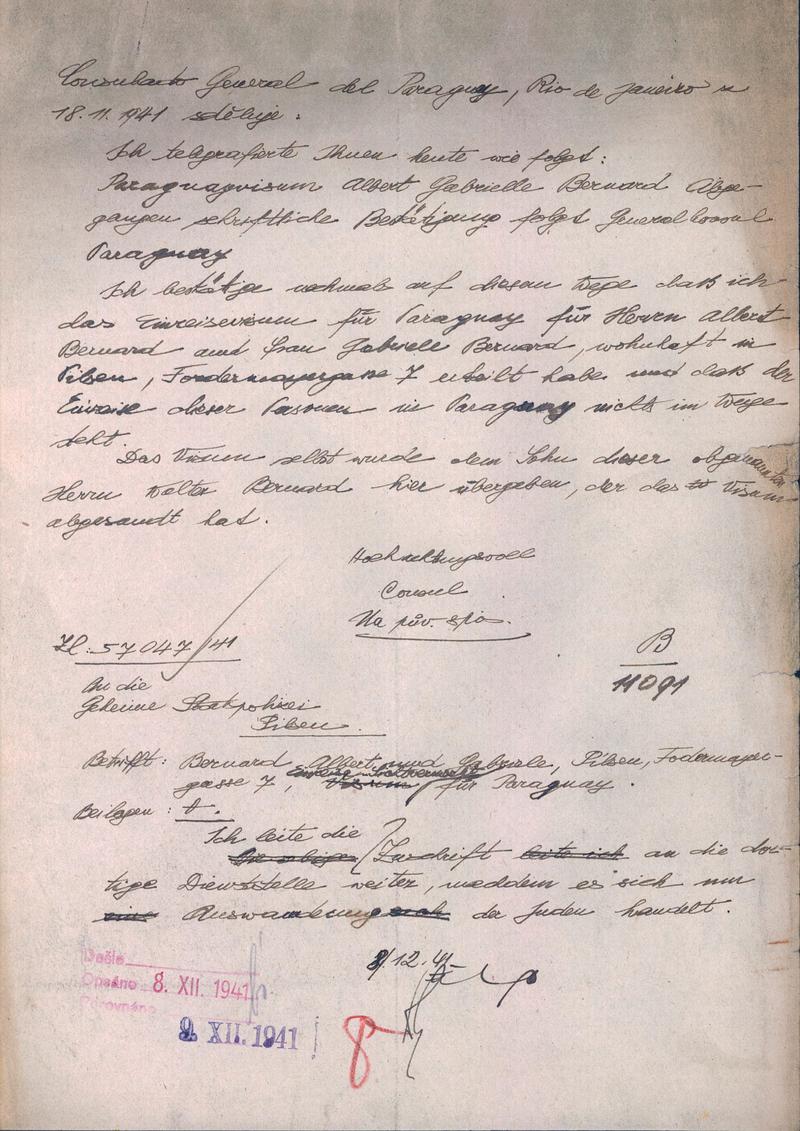 Consulado General del Paraguay, Rio de Janeiro
18.11.1941 sděluje:
Ich telegrafierte Ihnen heute wie folgt:
Paraguayvisum Albert Gabrielle Bernard Abge-
gangen schriftliche Bestätigung folgt Generalkonsul
Paraguay
Ich bestätige nochmals auf diesem Wege daß ich
das Einreisevisum für Paraguay für Herrn Albert
Bernard und Frau Gabriele Bernard, wohnhaft in
Pilsen, Fodermayergasse 7 erteilt habe und daß der
Einreise dieser Personen in Paraguay nichts im Wege
steht.
Das Visum selbst wurde dem Sohn dieser obgenannten
Herrn Walter Bernard hier übergeben, der das Visum
abgesandt hat.
Hochachtungsvoll
Consul
Na pův. spis.
Zl: 57047/41
B
11091
An die
Geheime Staatspolizei
Pilsen.
Betrifft: Bernard Albert und Gabriele, Pilsen, Fodermayer-
gasse 7, Visum für Paraguay.
Beilagen:
Ich leite die
Die obige Zuschrift leite ich an die dor-
tige Dienststelle weiter, nachdem es sich um
eine Auswanderung der Juden handelt.
8/12.41
Došlo
Opsáno 8. XII. 1941
Porovnáno
9. XII. 1941
8